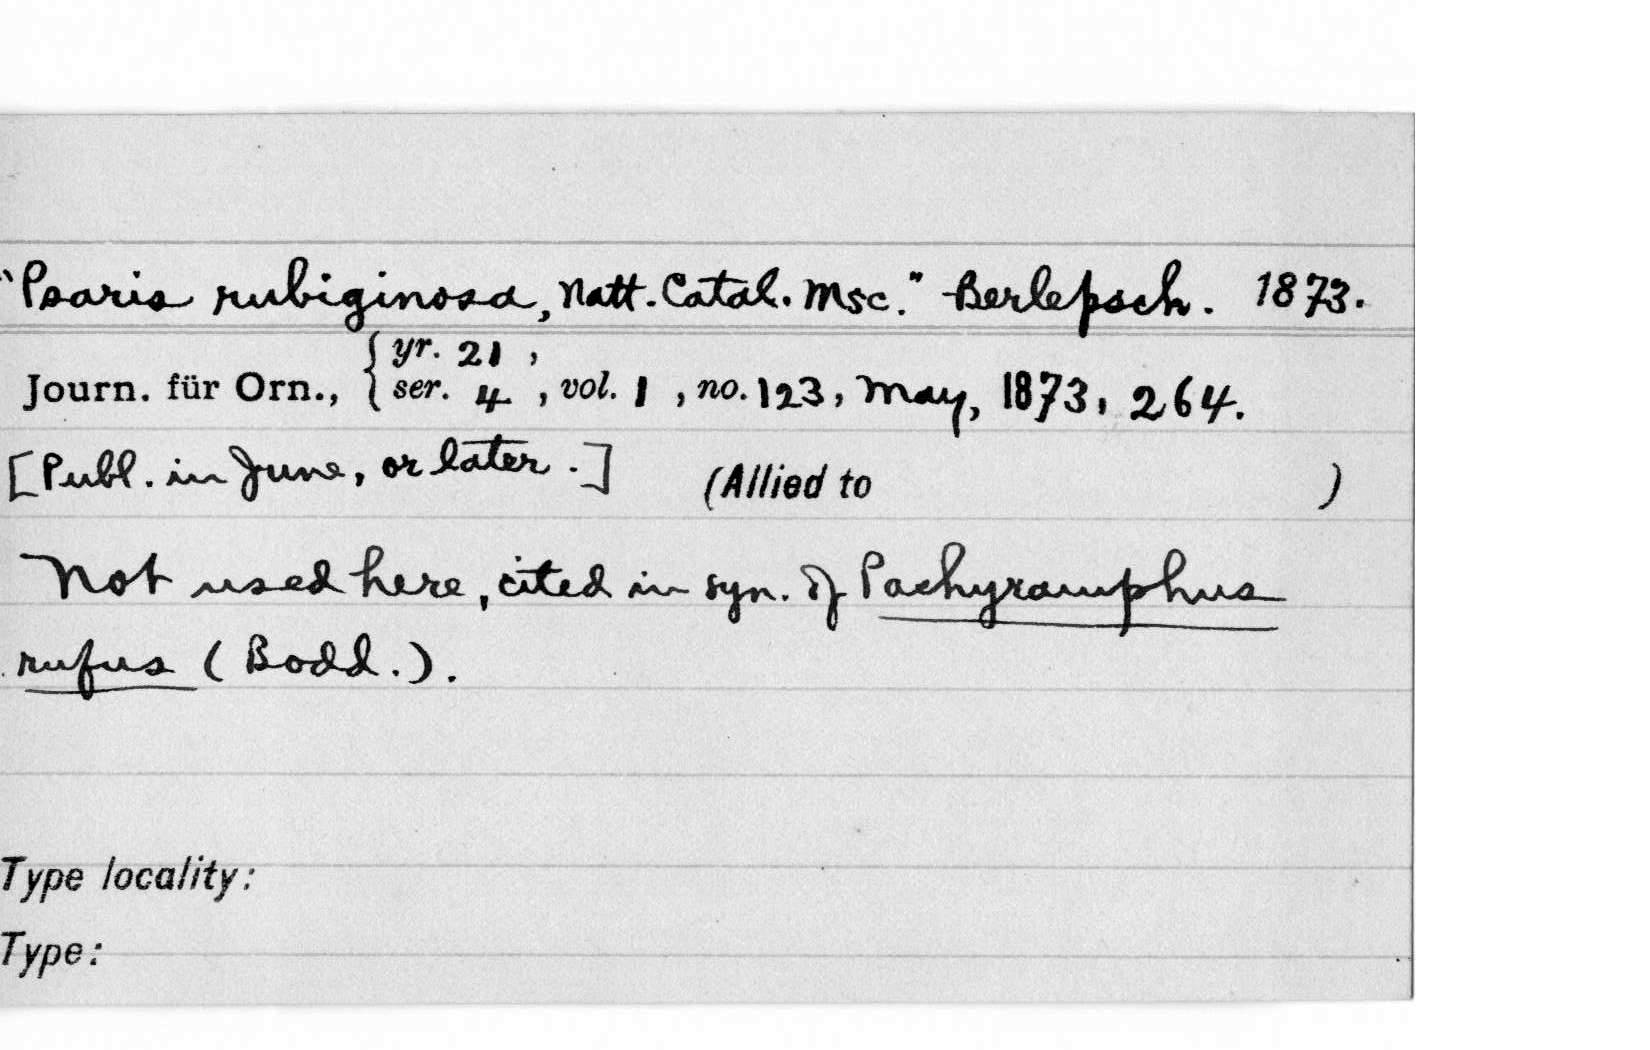 "Psaris rubiginosa, Natt. Catal. Msc." Berlepsch. 1873.
Journ. für Orn., { yr. 21 ,
ser. 4 , vol. 1 , no. 123, May, 1873, 264.
[Publ. in June, or later.] (Allied to )
Not used here, cited in syn. of Pachyramphus
rufus (Bodd.).
Type locality:
Type: